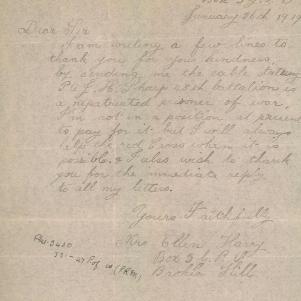 January 26th 1919
Dear Sir
I am writing a few lines to
thank you for your kindness
by sending me the cable stating
Pte J. H. Sharp 48th battalion is
a repatriated prisoner of war.
I'm not in a position at present
to pay for it but I will always
help the red Cross when it is
posible. & I also wish to thank
you for the immediate reply
to all my letters.
Yours Faithfully
Mrs Ellen
Box 5 G. P. O
Broken Hill